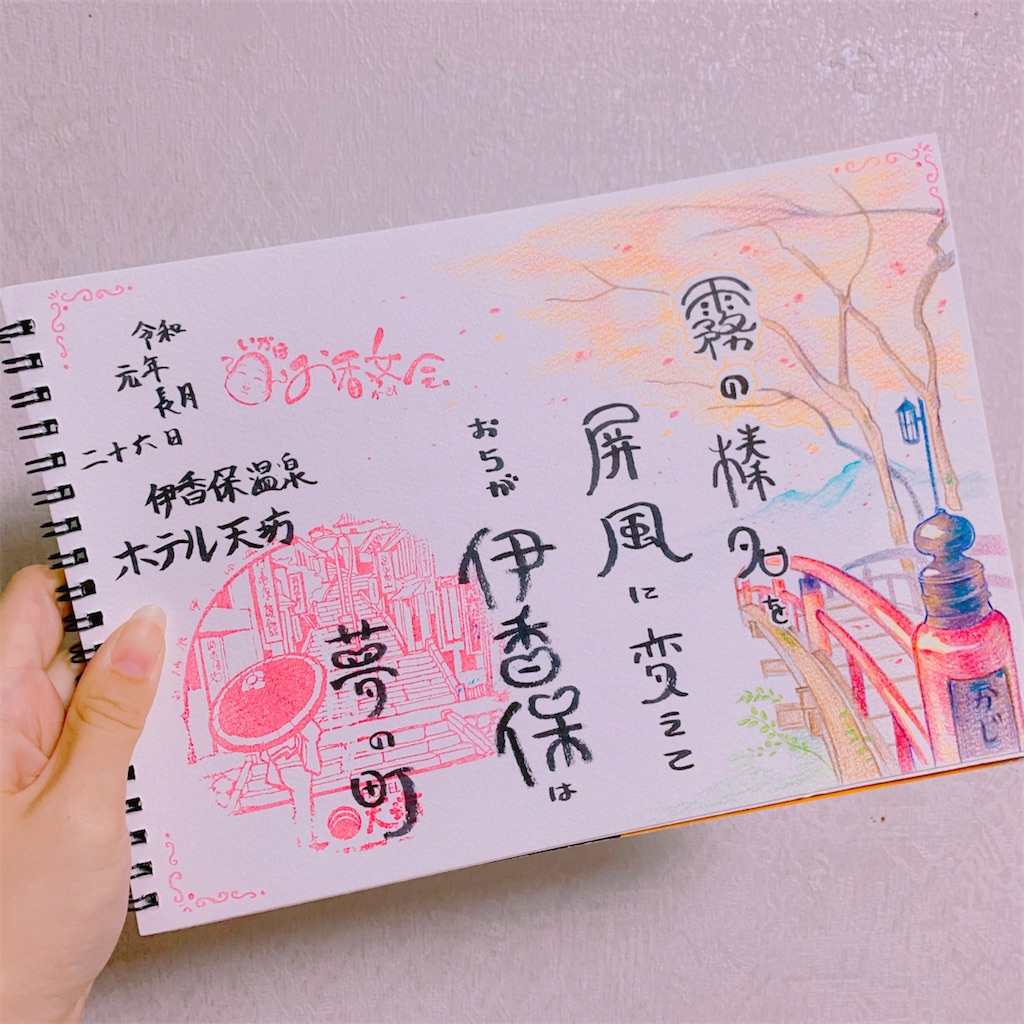 霧の榛名を
屏風に変えて
おらが伊香保は
夢の町
令和
元年
長月
二十六日
伊香保温泉
ホテル天坊
いかほ
かじ